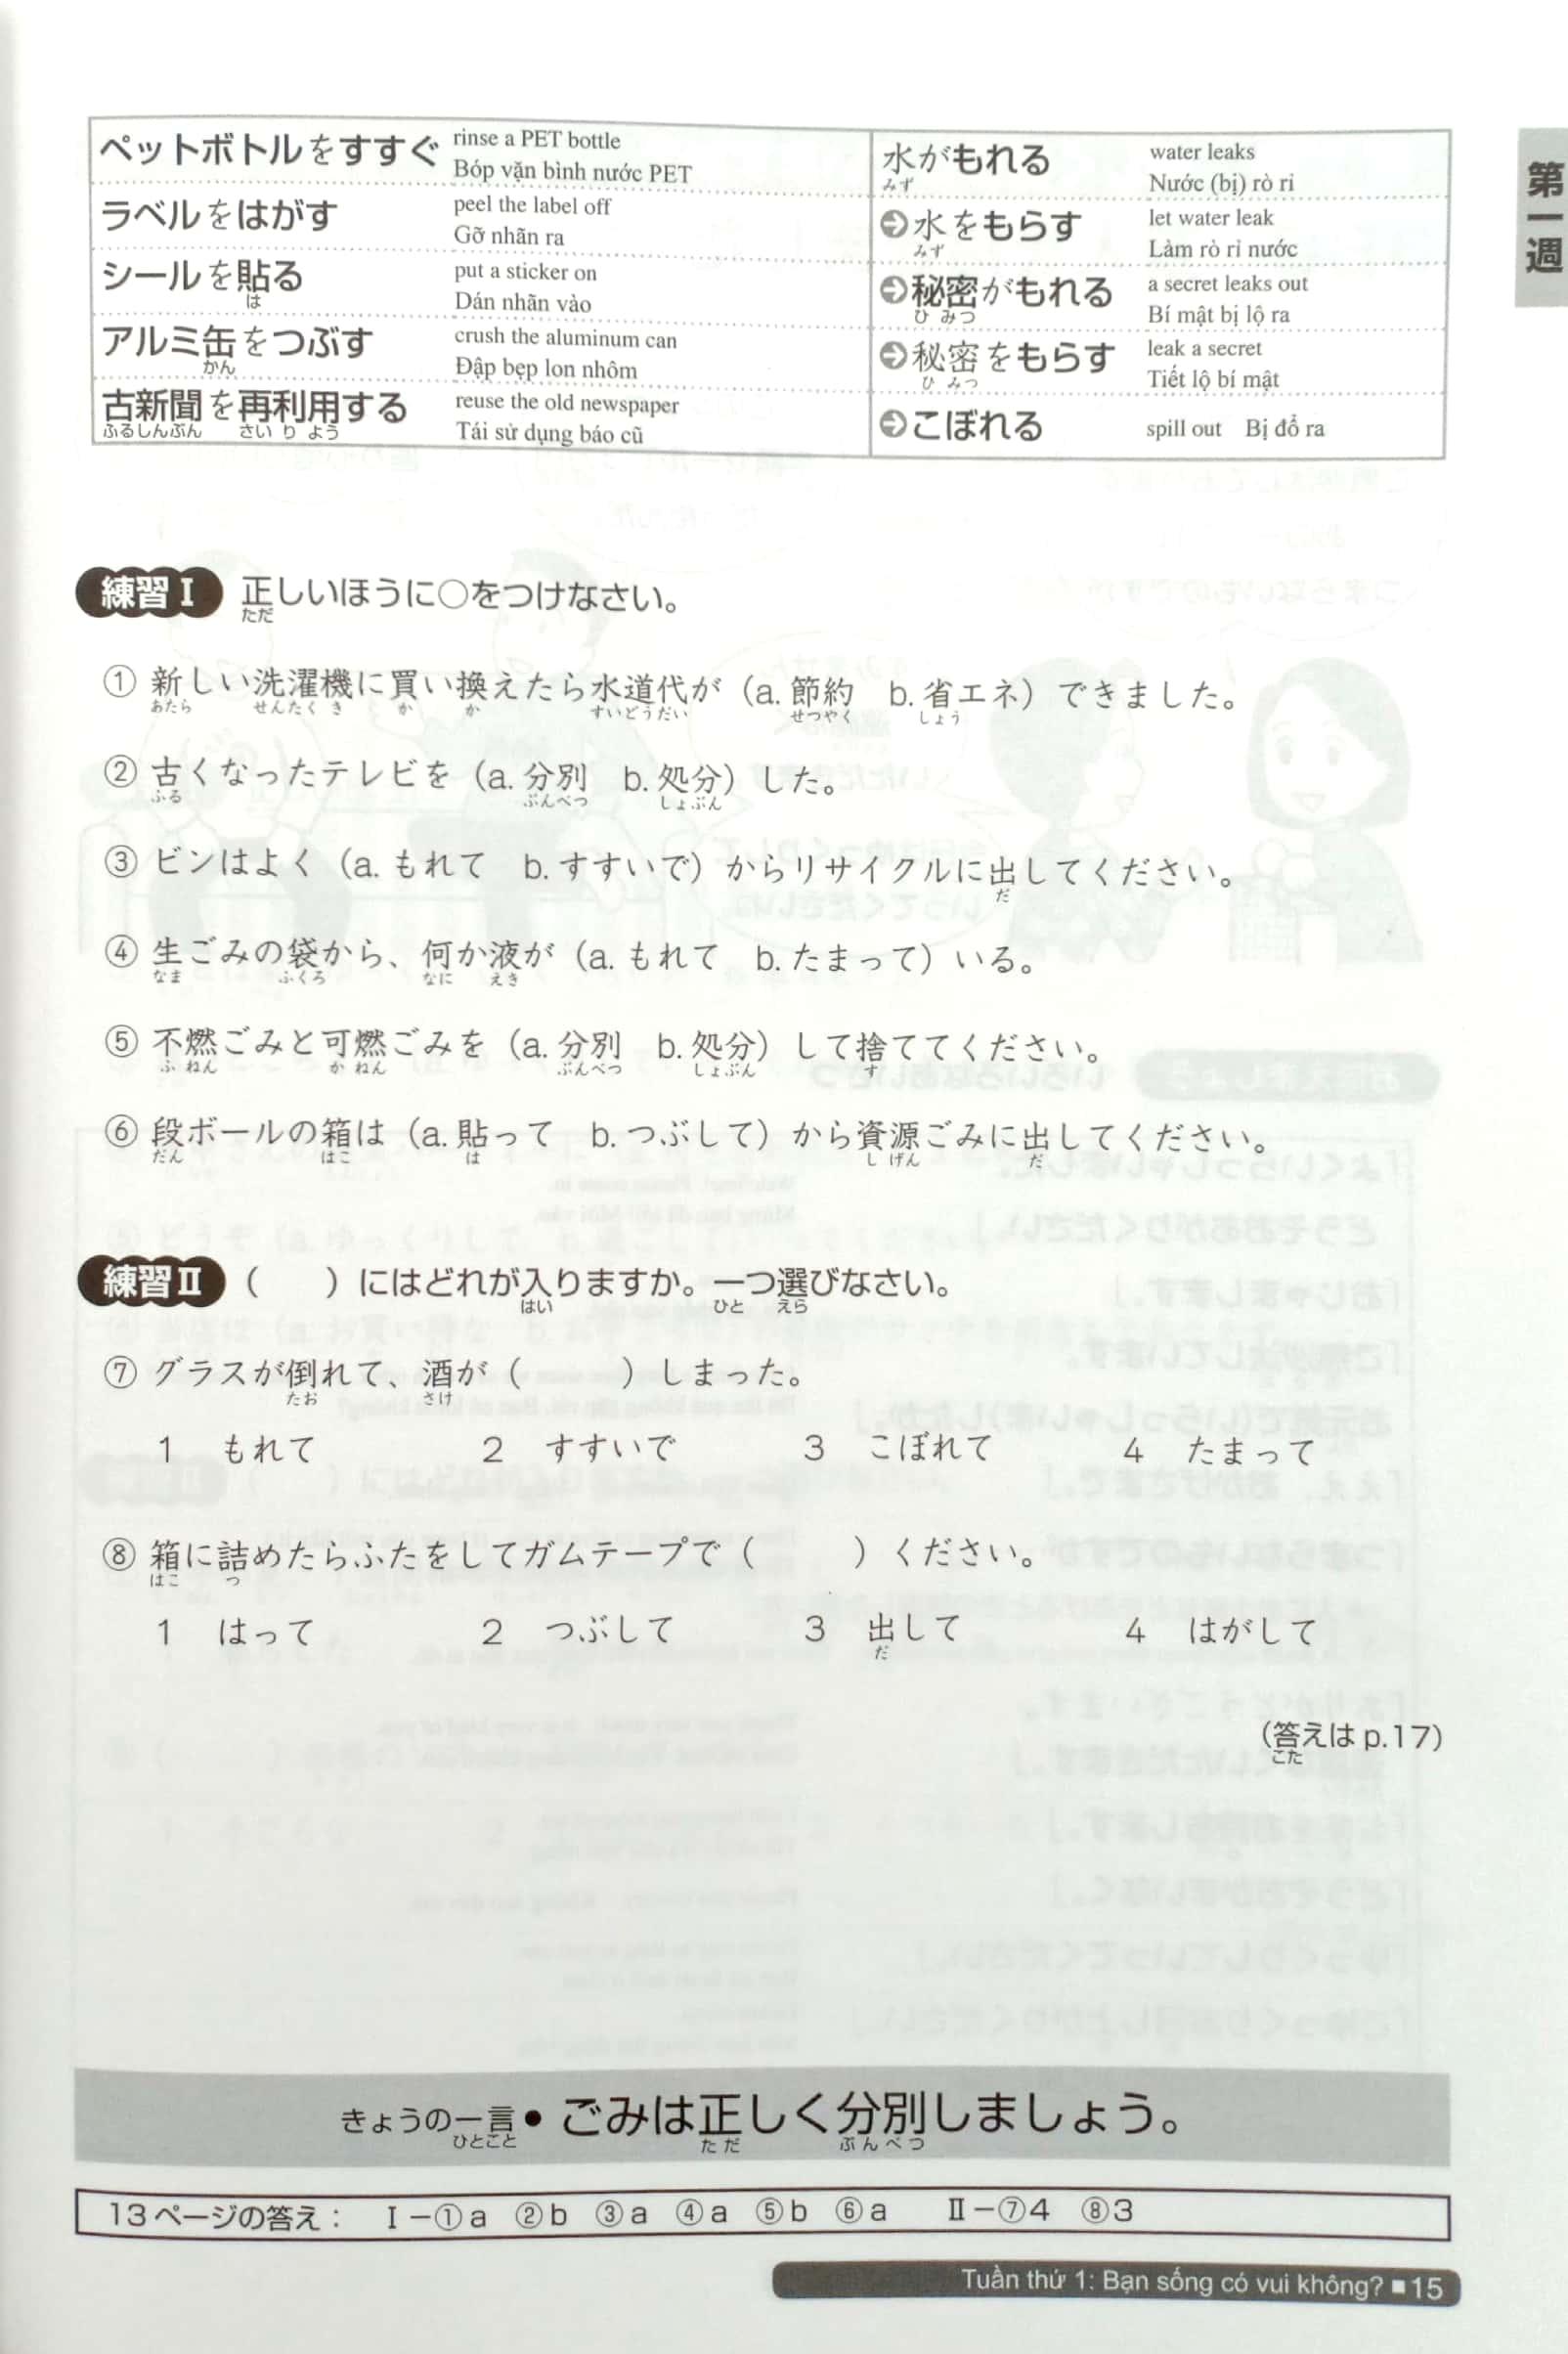 ペットボトルをすすぐ rinse a PET bottle
Bóp vặn bình nước PET
ラベルをはがす peel the label off
Gỡ nhãn ra
シールを貼る put a sticker on
は Dán nhãn vào
アルミ缶をつぶす crush the aluminum can
かん Đập bẹp lon nhôm
古新聞を再利用する reuse the old newspaper
ふるしんぶん さいりよう Tái sử dụng báo cũ
水がもれる water leaks
みず Nước (bị) rò rỉ
水をもらす let water leak
みず Làm rò rỉ nước
秘密がもれる a secret leaks out
ひみつ Bí mật bị lộ ra
秘密をもらす leak a secret
ひみつ Tiết lộ bí mật
こぼれる spill out Bị đổ ra
第一週
練習Ⅰ 正しいほうに○をつけなさい。
ただ
① 新しい洗濯機に買い換えたら水道代が（a. 節約 b. 省エネ）できました。
あたら せんたくき か か すいどうだい せつやく しょう
② 古くなったテレビを（a. 分別 b. 処分）した。
ふる ぶんべつ しょぶん
③ ビンはよく（a. もれて b. すすいで）からリサイクルに出してください。
だ
④ 生ごみの袋から、何か液が（a. もれて b. たまって）いる。
なま ふくろ なに えき
⑤ 不燃ごみと可燃ごみを（a. 分別 b. 処分）して捨ててください。
ふねん かねん ぶんべつ しょぶん す
⑥ 段ボールの箱は（a. 貼って b. つぶして）から資源ごみに出してください。
だん はこ は しげん だ
練習Ⅱ （ ）にはどれが入りますか。一つ選びなさい。
はい ひと えら
⑦ グラスが倒れて、酒が（ ）しまった。
たお さけ
1 もれて 2 すすいで 3 こぼれて 4 たまって
⑧ 箱に詰めたらふたをしてガムテープで（ ）ください。
はこ つ
1 はって 2 つぶして 3 出して 4 はがして
だ
（答えは p.17）
こた
きょうの一言●ごみは正しく分別しましょう。
ひとこと ただ ぶんべつ
13ページの答え： Ⅰ－①a ②b ③a ④a ⑤b ⑥a Ⅱ－⑦4 ⑧3
Tuần thứ 1: Bạn sống có vui không? ■ 15